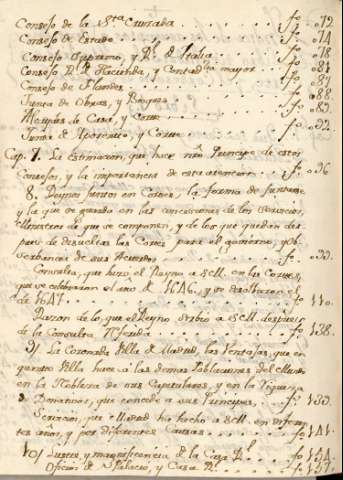 Consejo de la Sta Cruzada . . . . . fo. 072
Consejo de Estado . . . . . fo. 74
Consejo Supremo, y Rl. de Italia . . . fo. 78
Consejo Rl. de Hacienda, y Contadria mayor . fo. 81
Consejo de Flandes . . . . . fo. 87
Junta de Obras, y Bosques . . . . fo. 88
Alcaldes de Casa, y Corte . . . . fo. 89
Junta de Aposento, y Corte . . . . fo. 92
Cap. 7. La estimacion, que hace nro Principe de estos
Consejos, y la importancia de esta atencion . . fo. 96
8. Reynos juntos en Cortes, la forma de juntarse
y la que se guarda en las
Ministros de que se componen, y de lo que quedan des
pues de disueltas las Cortes, para el govierno, y obs
servancia de sus Acuerdos . . . . fo. 99
Consulta, que hizo el Reyno a S.M. en las Cortes,
que se celebraron el año de 1646, y se disolbieron el
de 1647 . . . . . fo. 110
Razon de lo, que el Reyno sirbio a S.M. despues
de la Consulta Referida . . . . fo. 138
9/ La Coronada Villa de Madrid, las Ventajas, que en
quanto Villa hace a las demas Poblaciones del Mundo
en la Nobleza de sus Capitulares, y en la
Donativos, que concede a sus Principes . . fo. 139
Servicios, que Madrid ha hecho a S.M. en diferen
tes años, y por diferentes Causas . . . fo. 141
10/ Lustre, y magnificencia de la Casa Rl. . fo. 154
Oficios de Palacio, y Casa Rl. . . . fo. 157